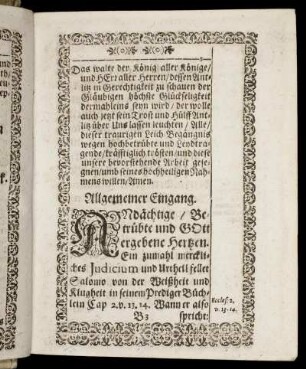 Das walte der König aller Könige/
und HErr aller Herren/ dessen Ant-
litz in Gerechtigkeit zu schauen der
Gläubigen höchste Glückseligkeit
dermahleins seyn wird/ der wolle
auch jetzt sein Trost und Hülff Ant-
litz über Uns lassen leuchten/ Alle/
dieser traurigen Leich Begängnis
wegen hochbetrübte und Leydtra-
gende/ kräfftiglich trösten/ und diese
unsere bevorstehende Arbeit geseg-
nen/ umb seines hochheiligen Nah-
mens willen/ Amen.
Allgemeiner Eingang.
ANdächtige/ Be-
trübte und GOtt
ergebene Hertzen.
Ein zumahl merckli-
ches Judicium und Urtheil fellet
Salomo von der Weißheit und
Klugheit in seinem Prediger Büch-
lein Cap 2. v. 13. 14. Wann er also
Eccles: 2,
v. 13. 14.
B 3 spricht: